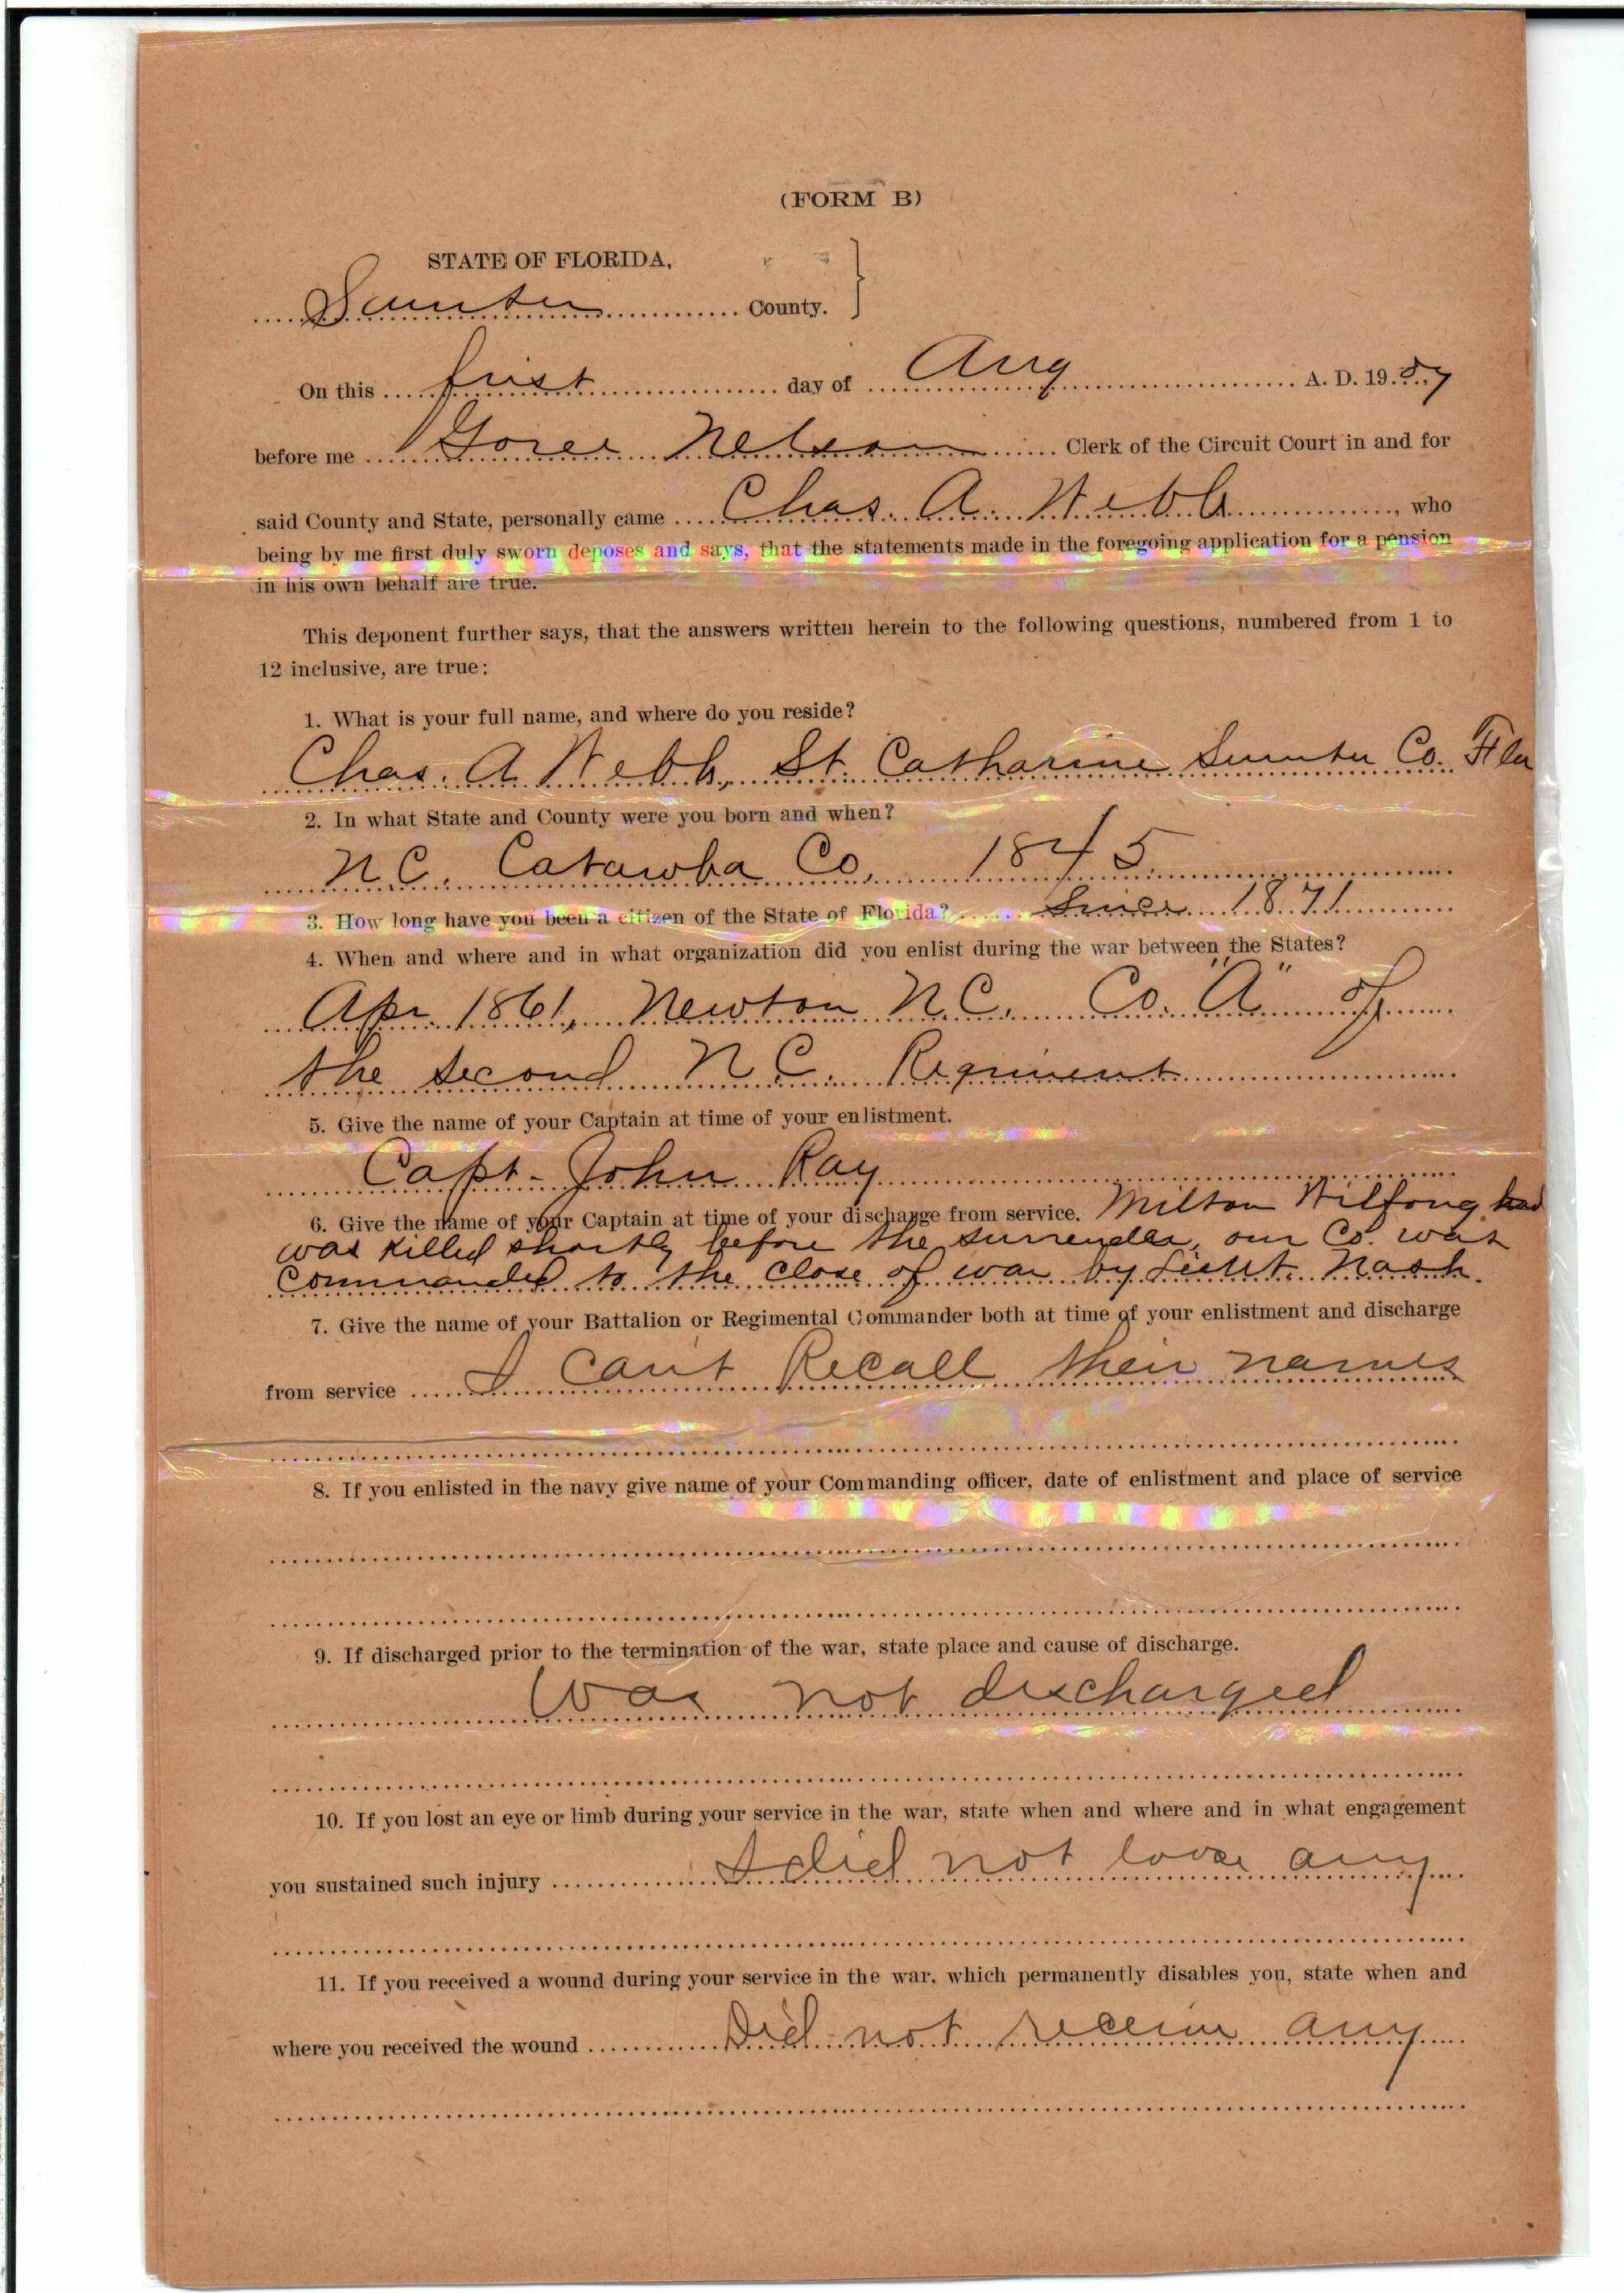 (FORM B)
STATE OF FLORIDA,
Sumter County.
On this first day of Aug A. D. 1907
before me Nelson Clerk of the Circuit Court in and for
said County and State, personally came Chas. A. Webb, who
being by me first duly sworn deposes and says, that the statements made in the foregoing application for a pension
in his own behalf are true.
This deponent further says, that the answers written herein to the following questions, numbered from 1 to
12 inclusive, are true:
1. What is your full name, and where do you reside?
Chas. A Webb, St. Catharine Sumter Co. Fla
2. In what State and County were you born and when?
N.C. Catawba Co. 1845
3. How long have you been a citizen of the State of Florida? Since 1871
4. When and where and in what organization did you enlist during the war between the States?
Apr. 1861, Newton N.C. Co. "A" of
the second N.C. Regiment
5. Give the name of your Captain at time of your enlistment.
Capt. John Ray
6. Give the name of your Captain at time of your discharge from service. Milton Wilfong had
was killed shortly before the surrender, our Co. was
Commanded to the close of war by Lieut. Nash.
7. Give the name of your Battalion or Regimental Commander both at time of your enlistment and discharge
from service I Can't Recall their names
8. If you enlisted in the navy give name of your Commanding officer, date of enlistment and place of service
9. If discharged prior to the termination of the war, state place and cause of discharge.
Was not discharged
10. If you lost an eye or limb during your service in the war, state when and where and in what engagement
you sustained such injury I did not loose any
11. If you received a wound during your service in the war, which permanently disables you, state when and
where you received the wound Did not receive any